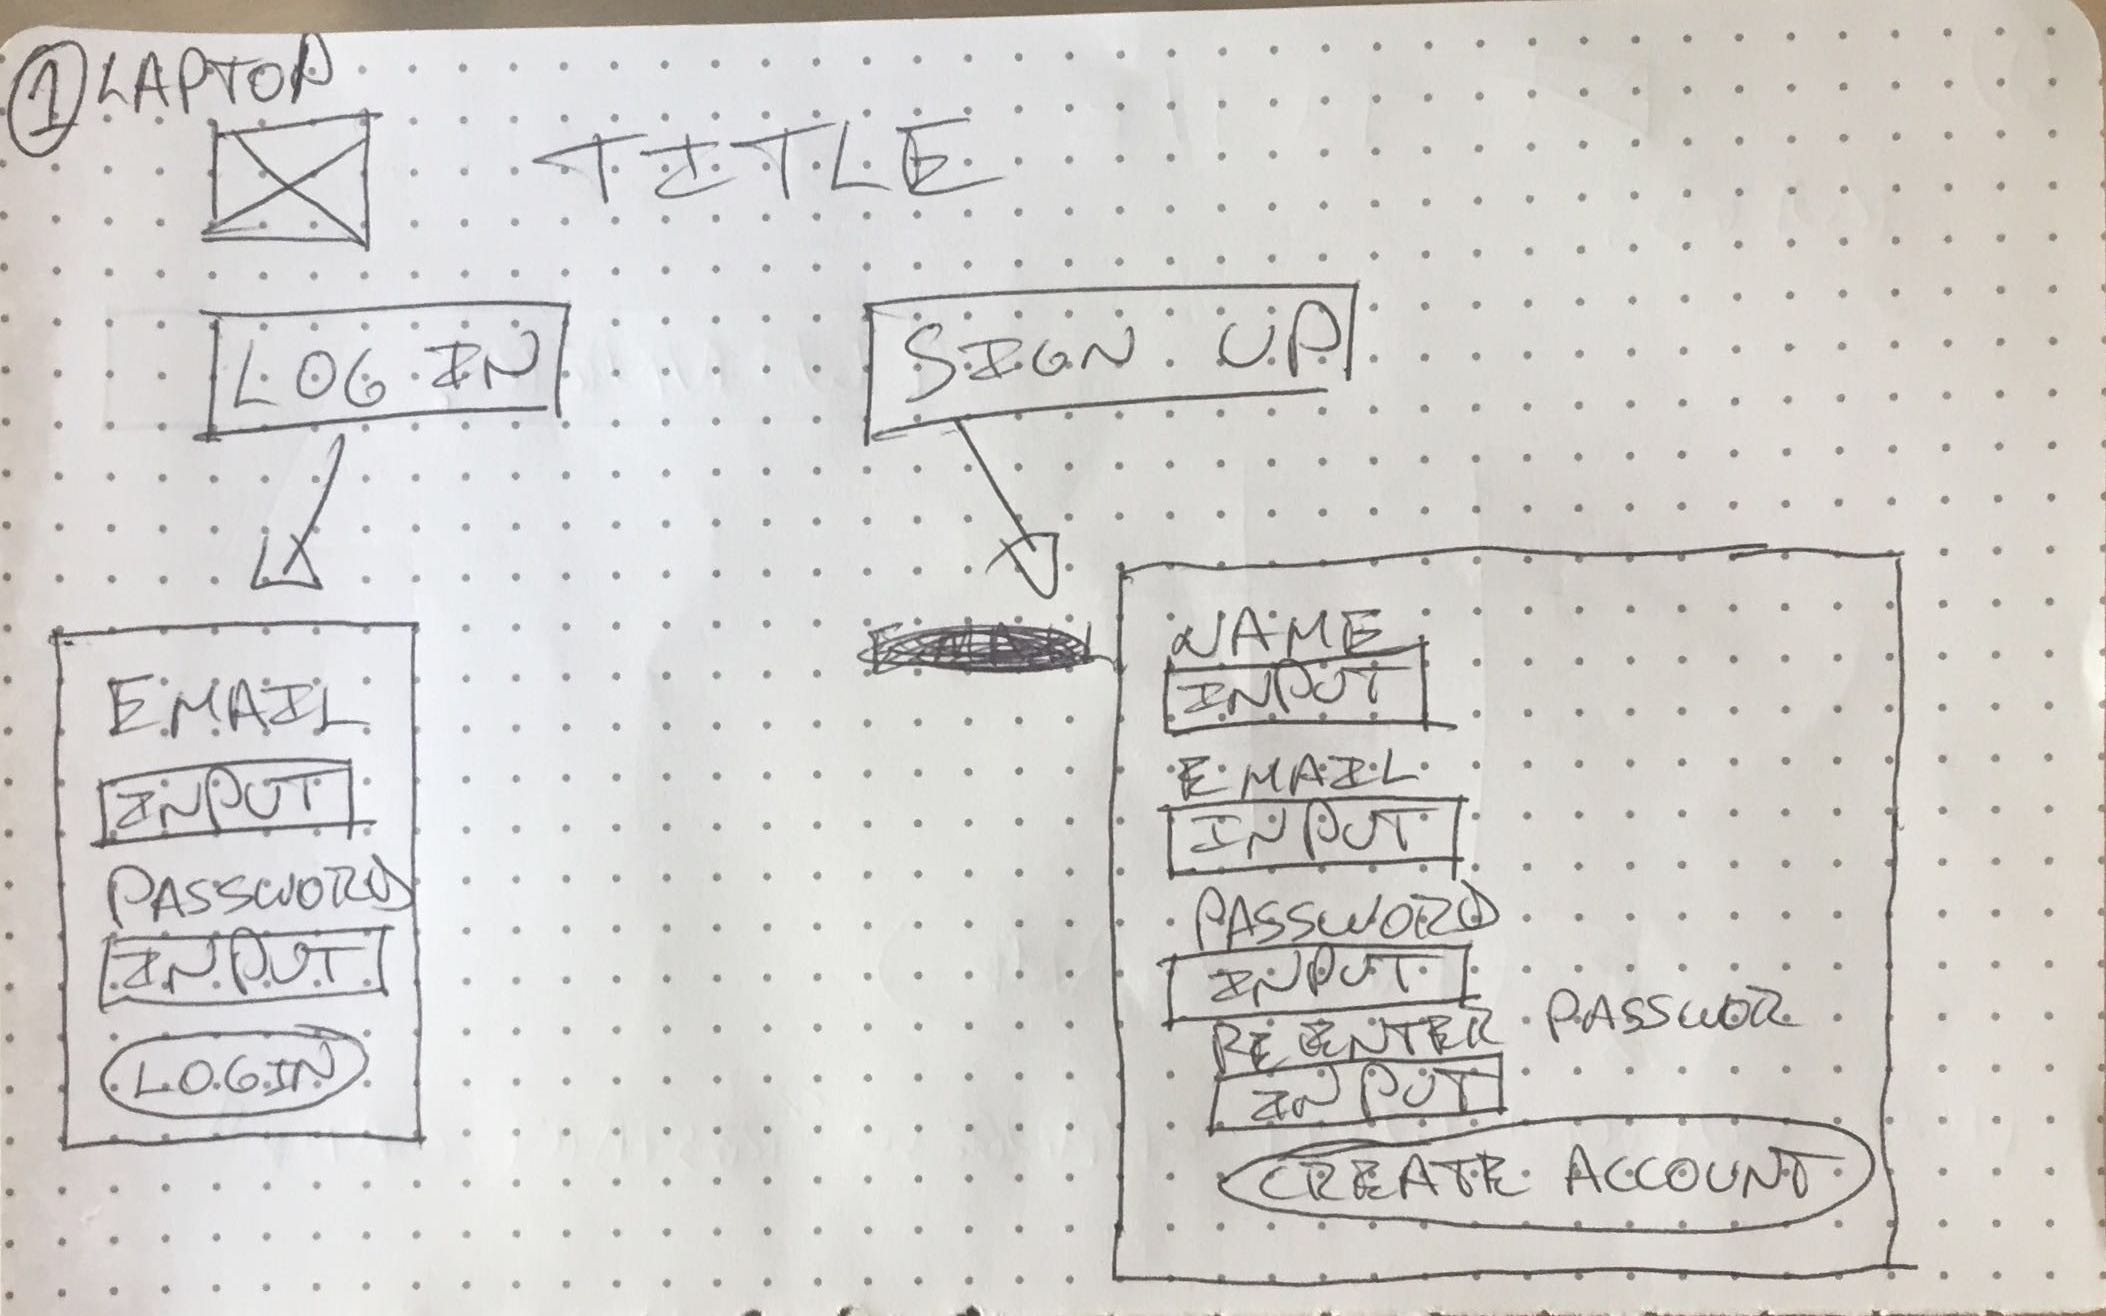 1 LAPTOP
TITLE
LOG IN
SIGN UP
EMAIL
INPUT
PASSWORD
INPUT
LOGIN
EMAIL
NAME
INPUT
EMAIL
INPUT
PASSWORD
INPUT
REENTER PASSWOR
INPUT
CREATE ACCOUNT